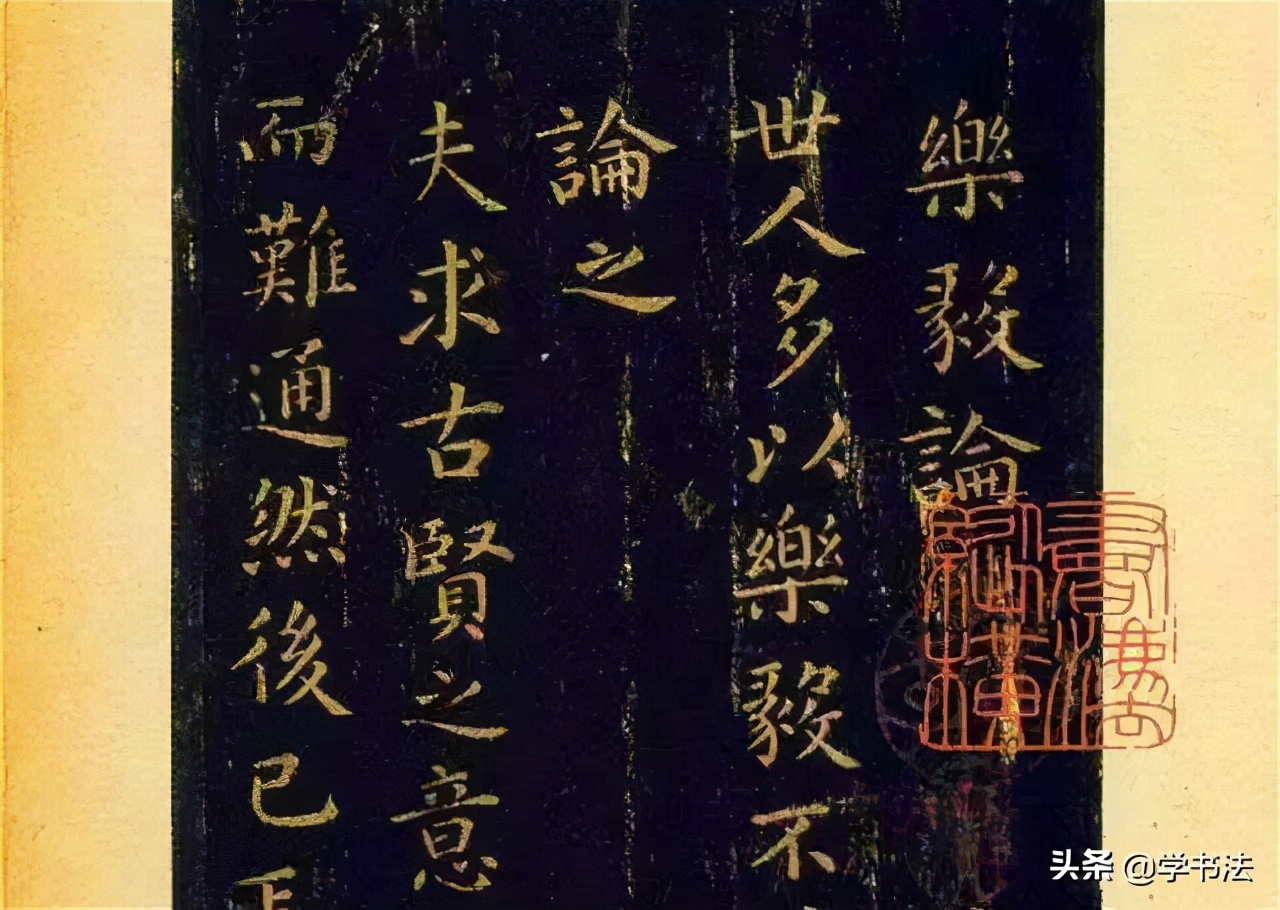 樂毅論
世人多以樂毅不
論之
夫求古賢之意
而難通然後已
头条 @学书法